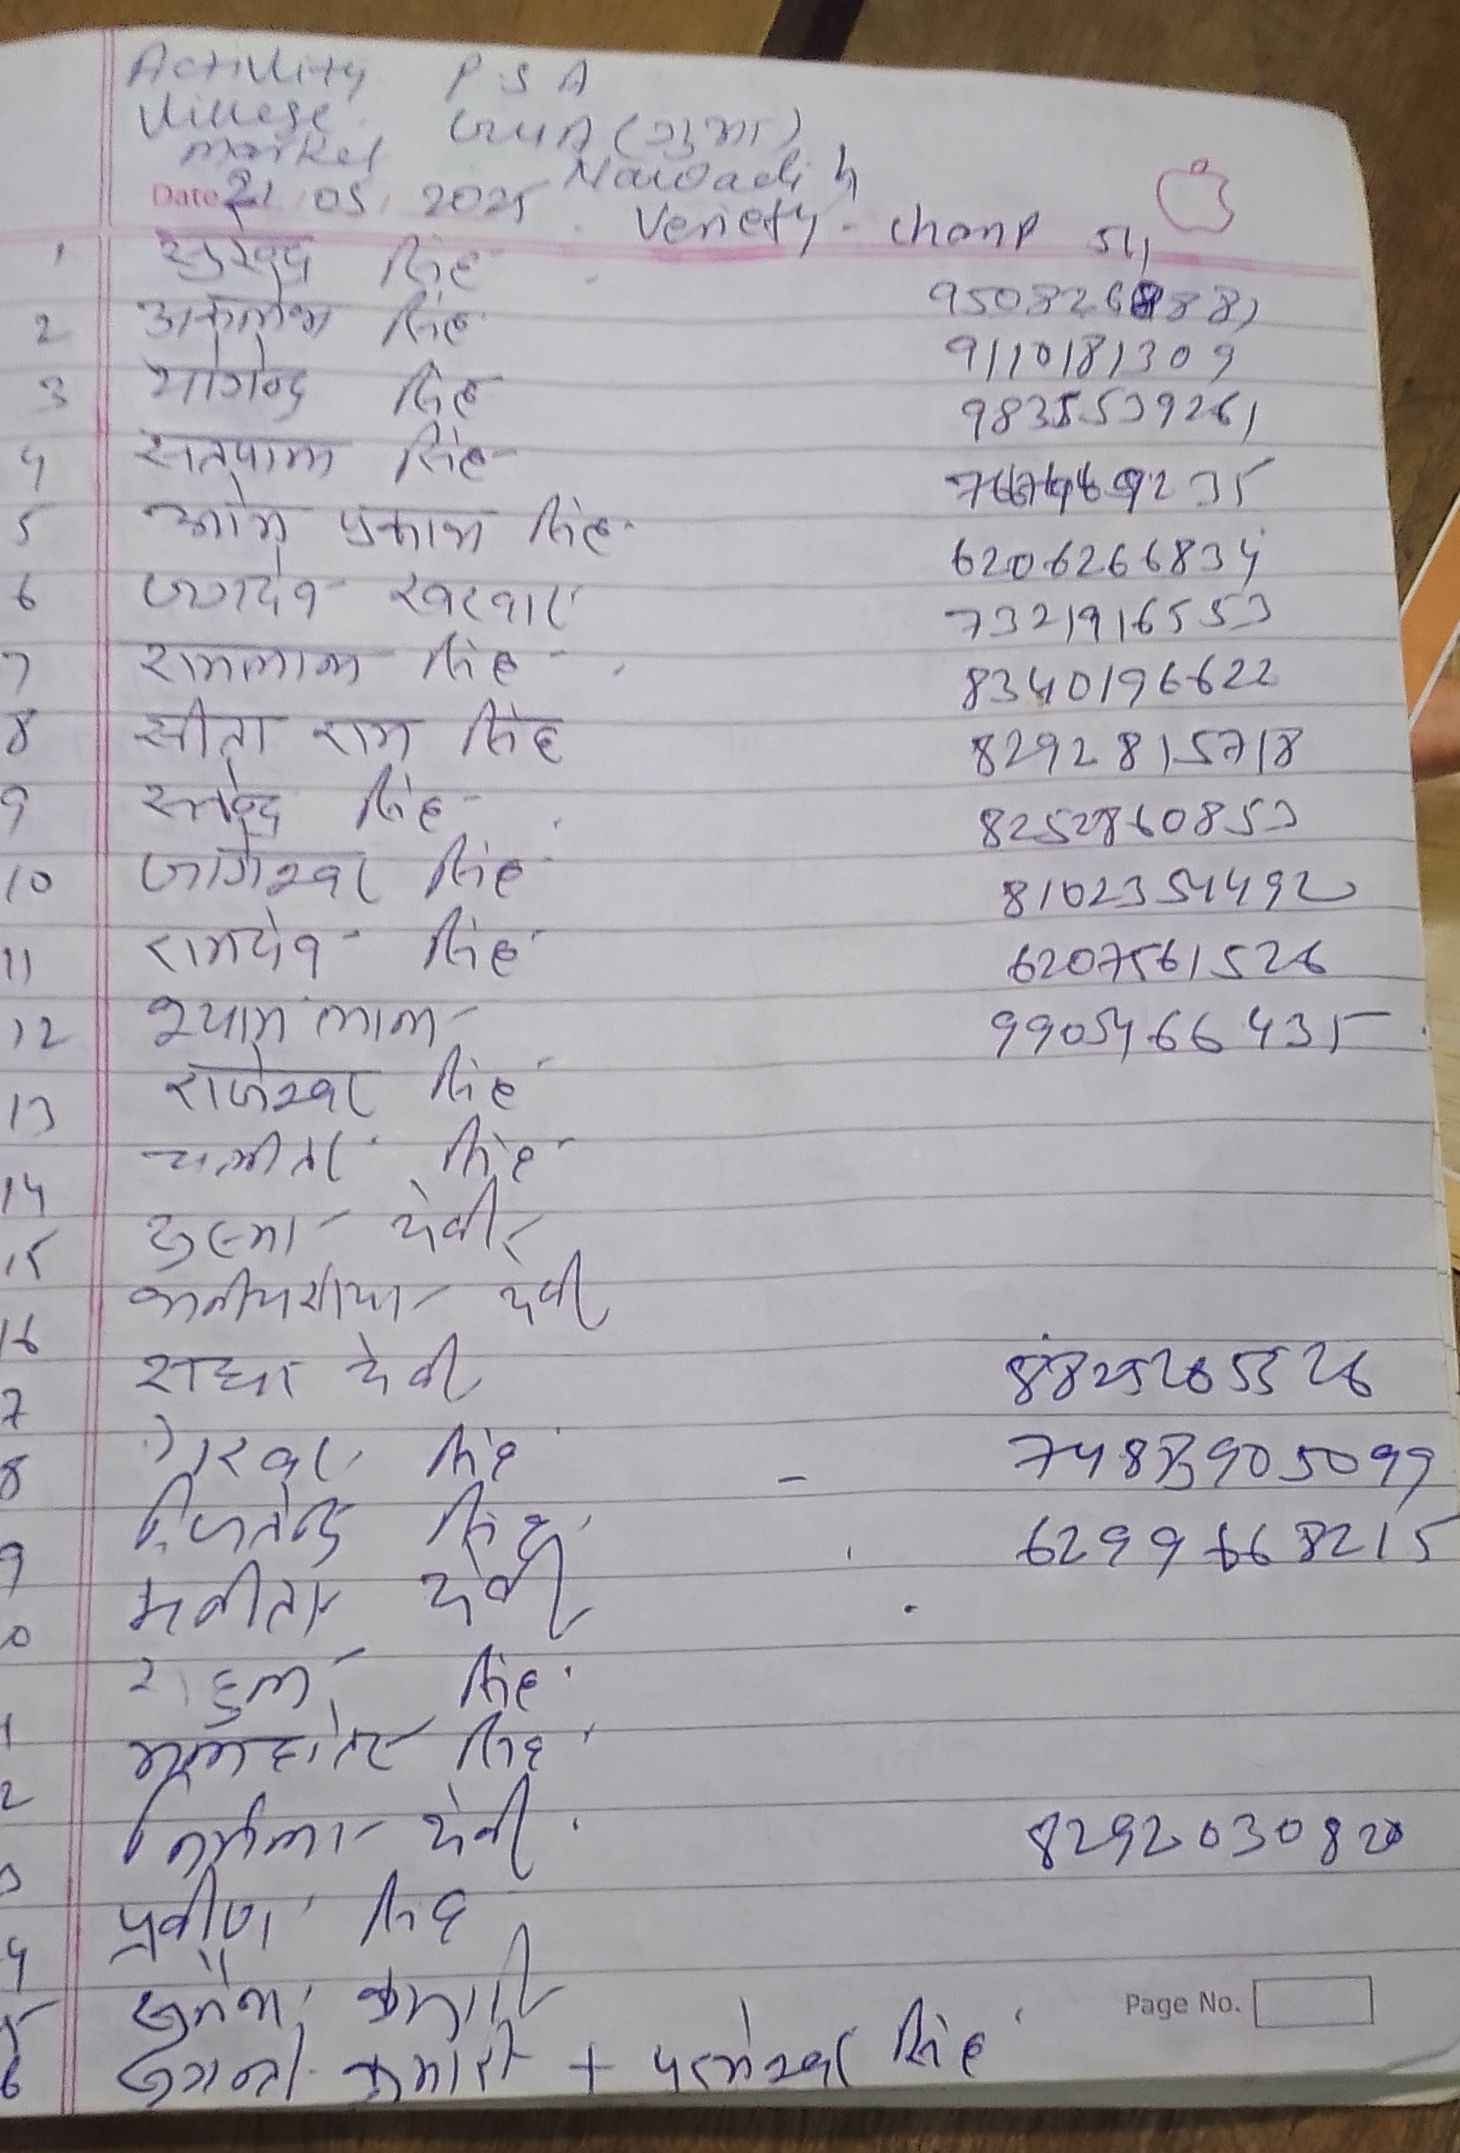 Activity P S A
Village (गुमा)
market Nawadih
Date 21 05 2025
Veriety - champ 511
1 सुरेन्द्र सिंह 9508268881
2 सिंह 9110181309
3 योगेन्द्र सिंह 9835539261
4 सतपाल सिंह 7667469235
5 ओम प्रकाश सिंह 6206266834
6 जगदेव खरवार 7321916553
7 रामलाल सिंह 8340196622
8 सीता राम सिंह 8292815718
9 सिंह 8252860853
10 जागेश्वर सिंह 8102354492
11 रामदेव सिंह 6207561526
12 श्याम लाल 9905466435
13 राजेश्वर सिंह
सिंह
14
देवी
15
देवी
16
राधा देवी 8825265526
7
सिंह - 7483905099
8
जितेन्द्र सिंह 6299668215
9
देवी
0
राहुल सिंह
1
सिंह
2
निर्मला देवी 8292030820
3
प्रवीण सिंह
4
कुमारी
5
6 कुमारी + परमेश्वर सिंह
Page No.